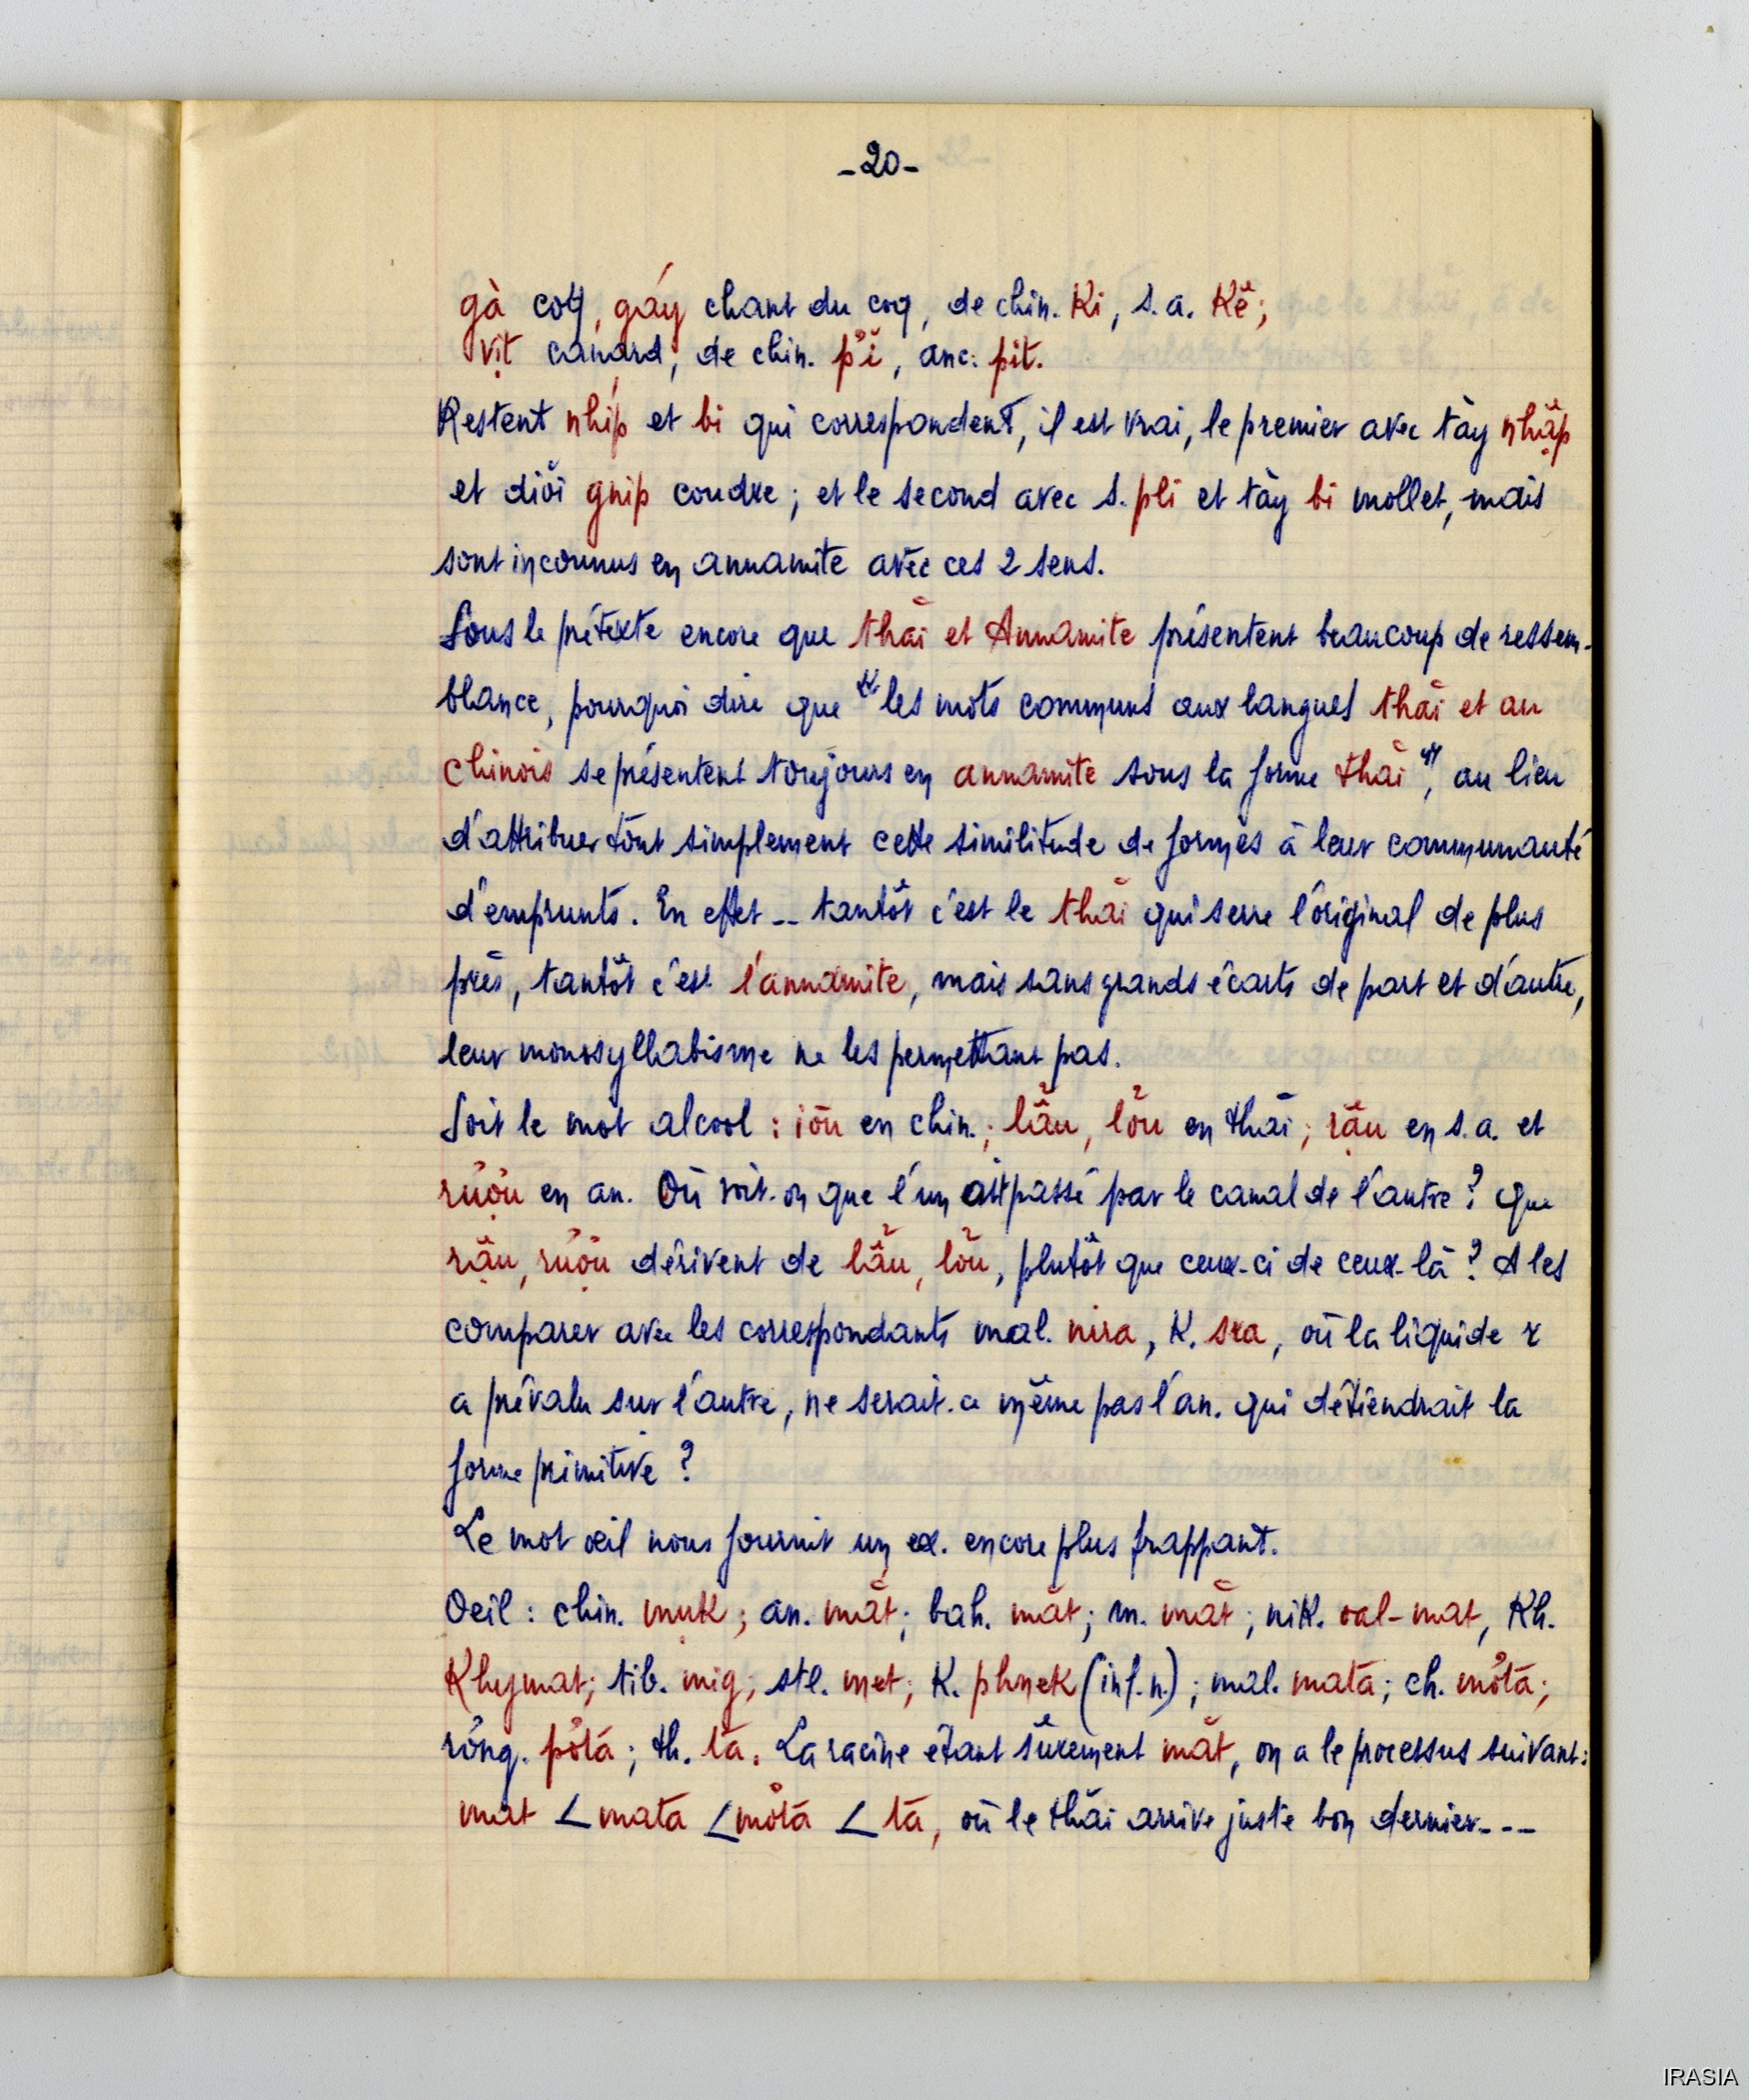 -20-
gà coq, gáy chant du coq, de chin. Ki, s.a. Kê;
vịt canard, de chin. p'i, anc. pit.
Restent nhíp et bi qui correspondent, il est vrai, le premier avec tày nhập
et diôi gnip coudre; et le second avec s. pli et tày bi mollet, mais
sont inconnus en annamite avec ces 2 sens.
Sous le prétexte encore que thăi et Annamite présentent beaucoup de ressem-
blance, pourquoi dire que "les mots communs aux langues thăi et au
chinois se présentent toujours en annamite sous la forme thăi", au lieu
d'attribuer tout simplement cette similitude de formes à leur communauté
d'emprunts. En effet -- tantôt c'est le thăi qui serre l'original de plus
près, tantôt c'est l'annamite, mais sans grands écarts de part et d'autre,
leur monosyllabisme ne les permettant pas.
Soit le mot alcool : iǒu en chin.; lẩu, lỏu en thăi; rậu en s.a. et
rượu en an. Où voit-on que l'un ait passé par le canal de l'autre? Que
rậu, rượu dérivent de lẩu, lỏu, plutôt que ceux-ci de ceux-là? A les
comparer avec les correspondants mal. nira, K. sra, où la liquide r
a prévalu sur l'autre, ne serait-ce même pas l'an. qui détiendrait la
forme primitive?
Le mot œil nous fournit un ex. encore plus frappant.
Oeil : chin. muk; an. mắt; bah. măt; m. măt; nik. oal-mat, Kh.
Khymat; tib. mig; stl. met; K. phnek (inf. n.); mal. mata; ch. mơta;
röng. pơta; th. ta. La racine étant sûrement măt, on a le processus suivant:
mat ∠ mata ∠ mơta ∠ ta, où le thăi arrive juste bon dernier---
IRASIA